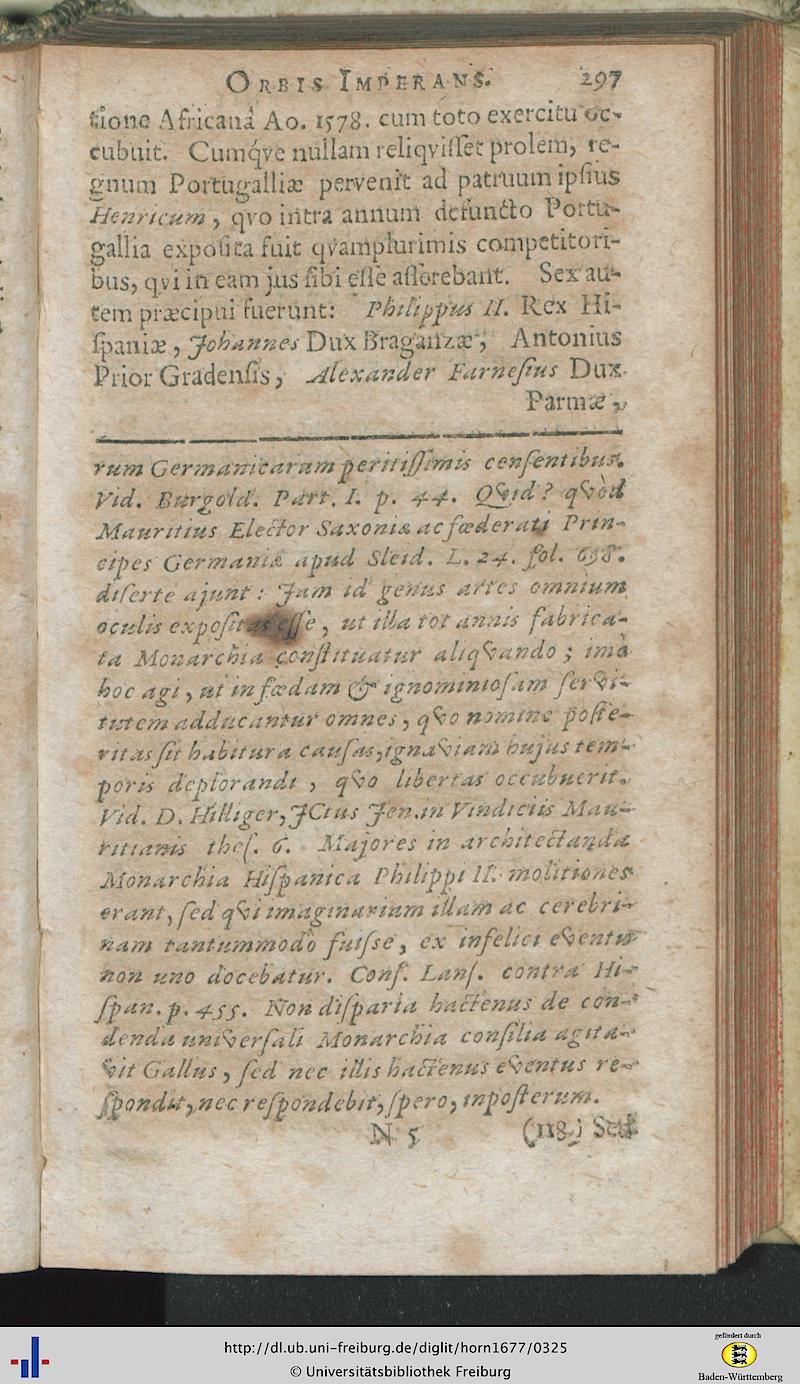 ORBIS IMPERANS. 297
tione Africanâ Ao. 1578. cum toto exercitu oc-
cubuit. Cumq́ve nullam reliqviſſet prolem, re-
gnum Portugalliæ pervenit ad patruum ipſius
Henricum, qvo intra annum defuncto Portu-
gallia expoſita fuit qvamplurimis competitori-
bus, qvi in eam jus ſibi eſſe aſſerebant. Sex au-
tem præcipui fuerunt: Philippus II. Rex Hi-
ſpaniæ, Johannes Dux Braganzæ, Antonius
Prior Gradenſis, Alexander Farneſius Dux
Parmæ,
rum Germanicaram peritiſſimis cenſentibus.
Vid. Burgold. Part. I. p. 44. Qvid? qvòd
Mauritius Elector Saxoniæ ac fœderati Prin-
cipes Germaniæ apud Sleid. L. 24. fol. 698.
diſerte ajunt: Jam id genus artes omnium
oculis expoſitas eſſe, ut illa tot annis fabrica-
ta Monarchia conſtituatur aliqvando; imò
hoc agi, ut in fœdam & ignominioſam ſervi-
tutem adducantur omnes, qvo nomine poſte-
ritas ſit habitura cauſas, ignaviam hujus tem-
poris deplorandi, qvo libertas occubuerit.
Vid. D. Hilliger, JCtus Jen. in Vindiciis Mau-
ritianis theſ. 6. Majores in architectanda
Monarchia Hiſpanica Philippi II. molitiones
erant, ſed qvi imaginarium illam ac cerebri-
nam tantummodò fuiſse, ex infelici eventu
non uno docebatur. Conf. Lanſ. contra Hi-
ſpan. p. 455. Non diſparia hactenus de con-
denda univerſali Monarchia conſilia agita-
vit Gallus, ſed nec illis hactenus eventus re-
ſpondit, nec reſpondebit, ſpero, inpoſterum.
N 5 (118.) Sed
http://dl.ub.uni-freiburg.de/diglit/horn1677/0325
© Universitätsbibliothek Freiburg
gefördert durch
Baden-Württemberg